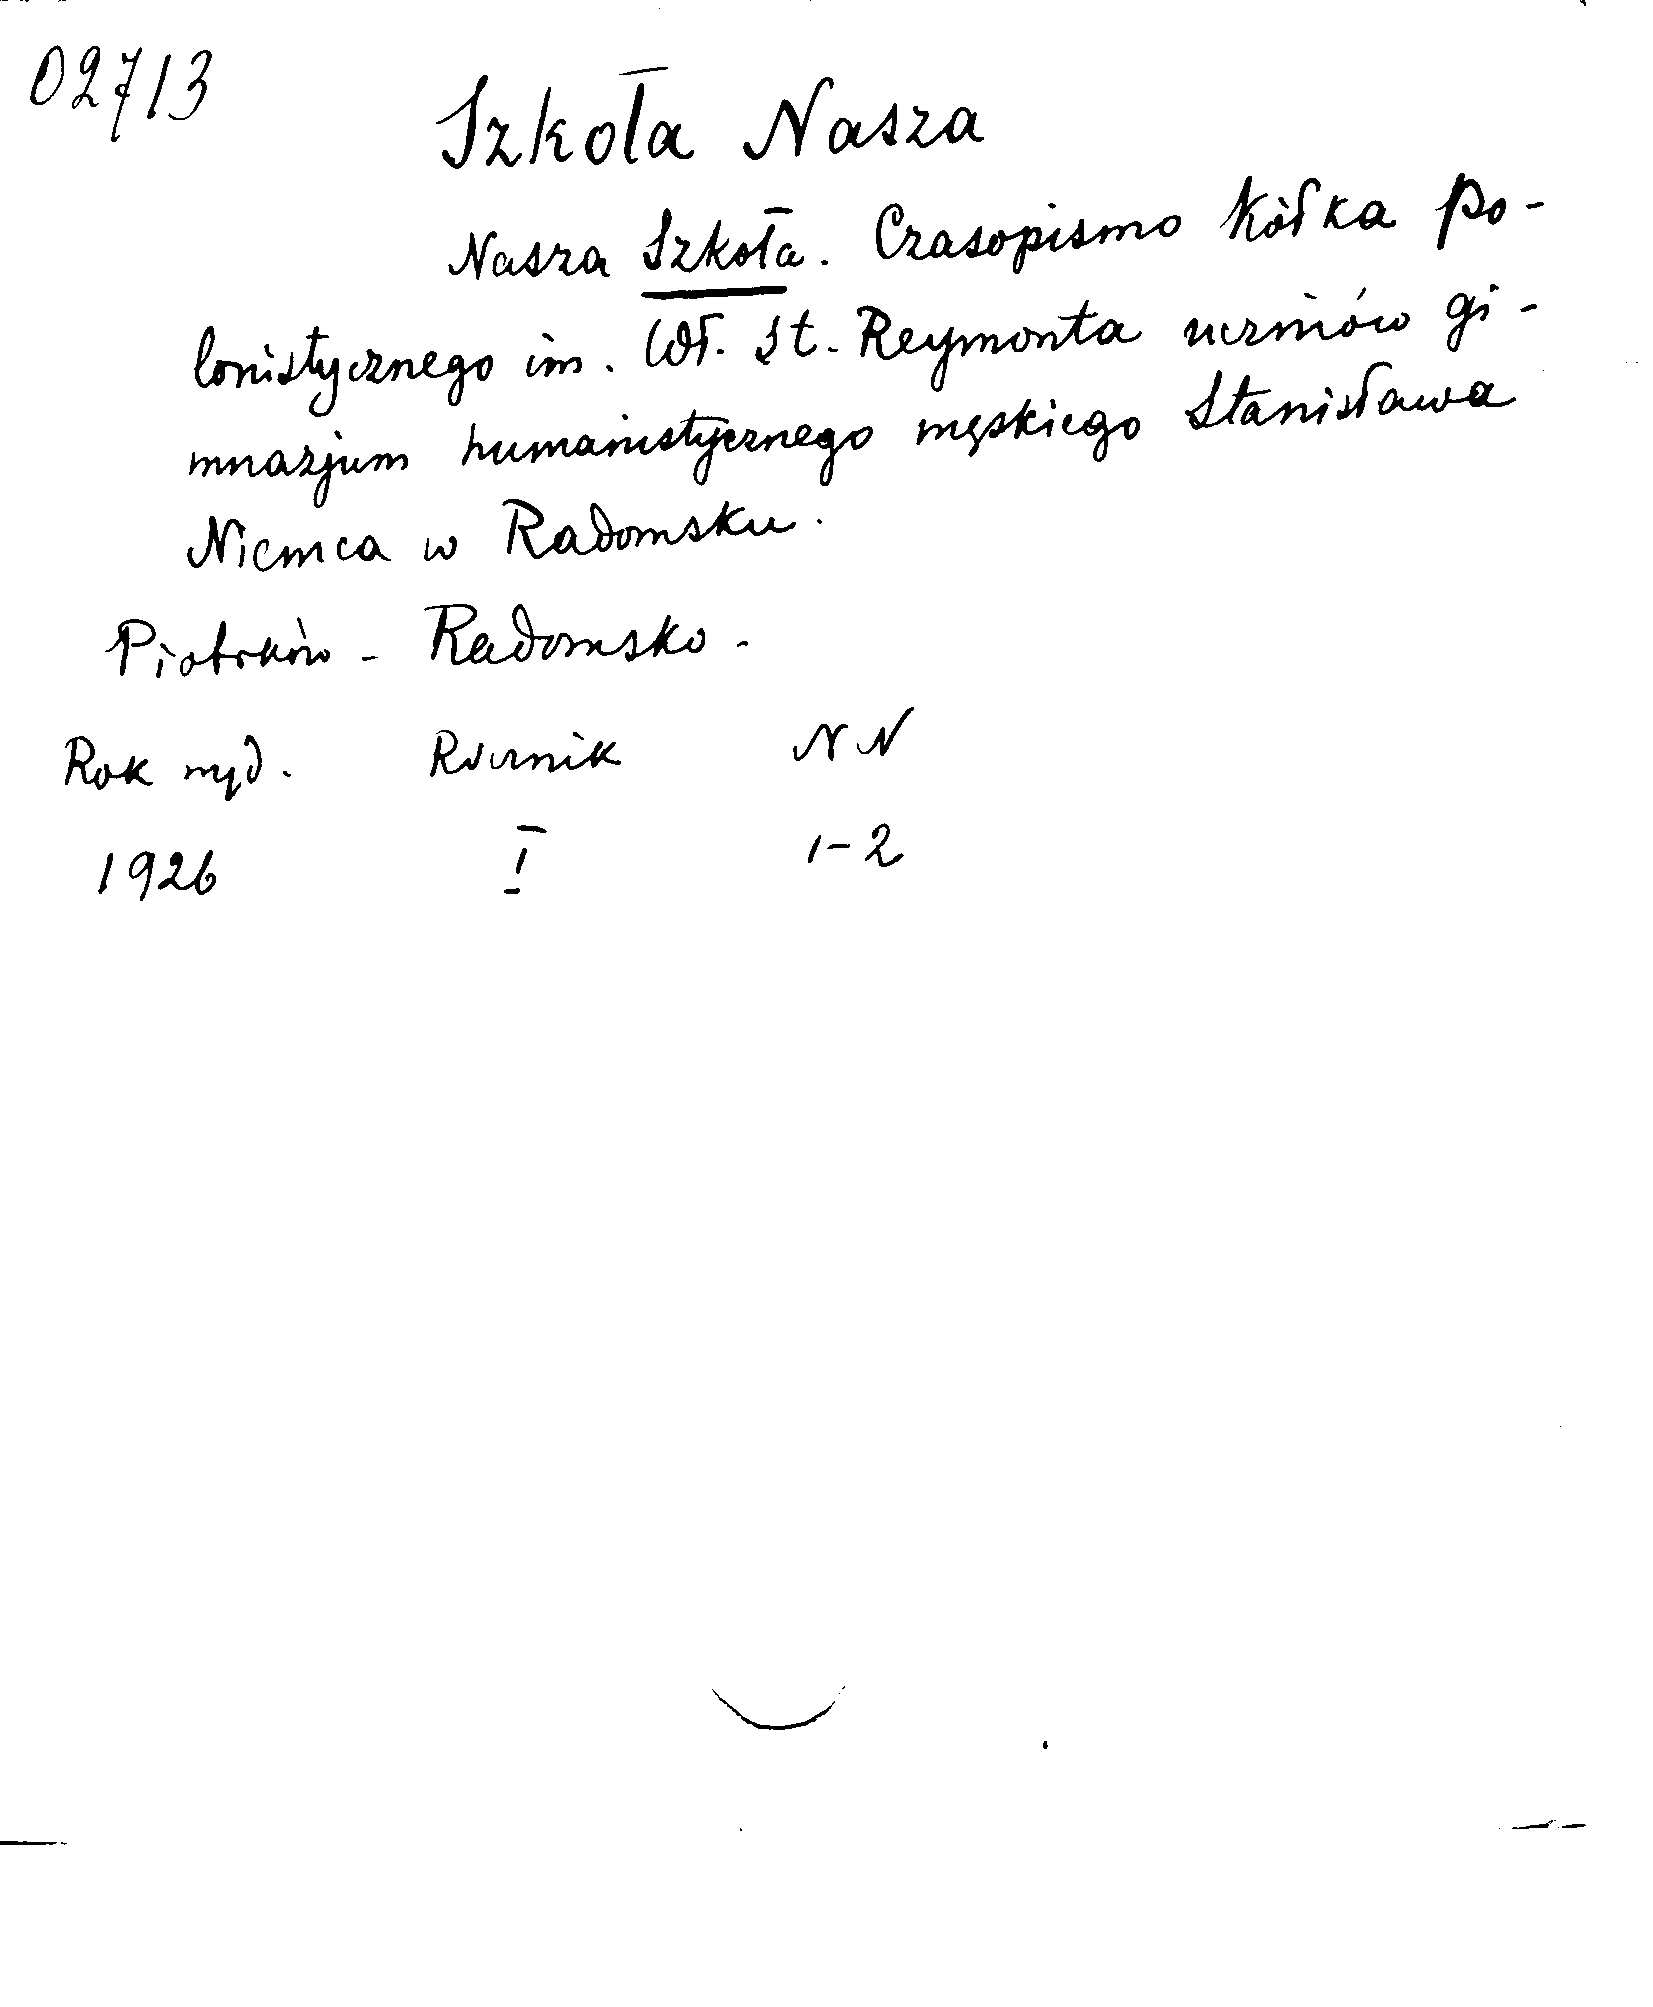 02713
Szkoła Nasza
Nasza Szkoła. Czasopismo Kółka Po-
lonistycznego im. Wł. St. Reymonta uczniów gi-
mnazjum humanistycznego męskiego Stanisława
Niemca w Radomsku.
Piotrków - Radomsko -
Rok wyd. Rocznik NN
1926 I 1-2